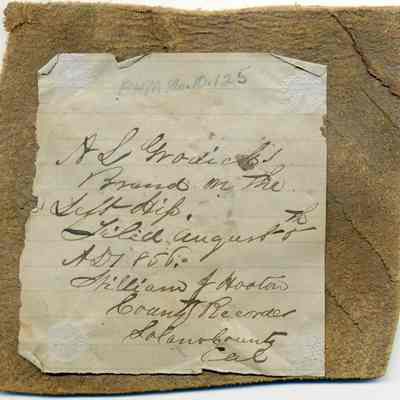 No. D.125
A L
Brand on the
Left Hip.
Filed August 8th
AD 1855.
William J Hooton
County Recorder
Solano County
Cal